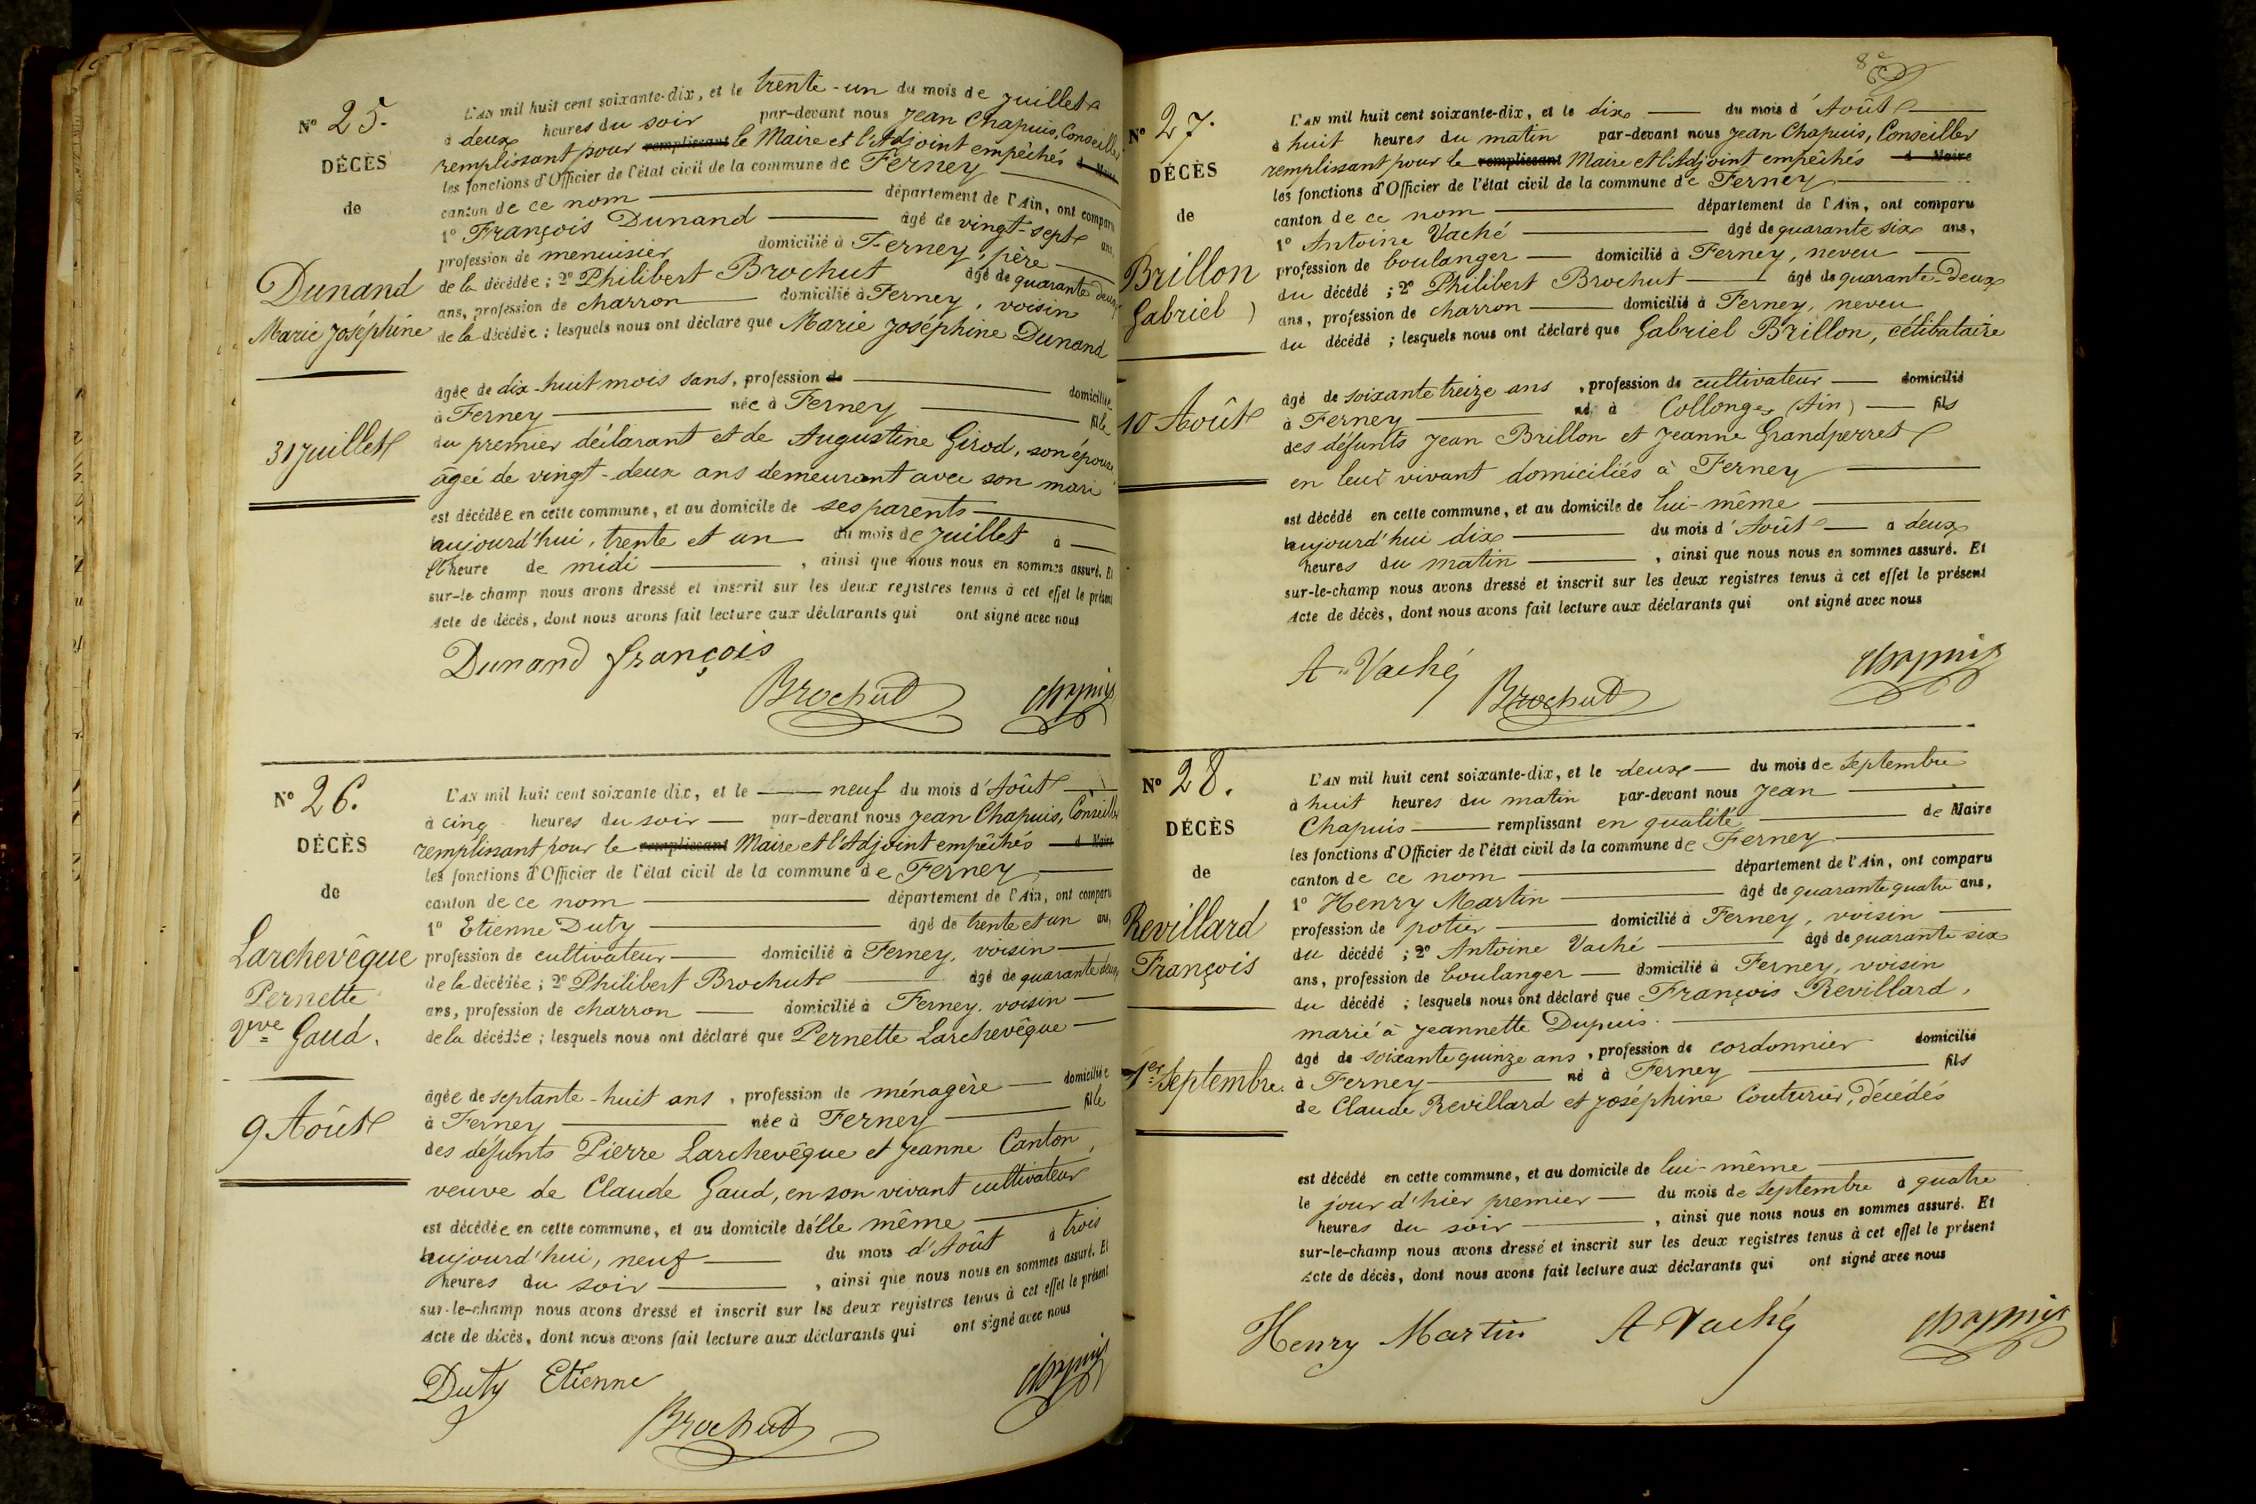 Nº 25.
DÉCÈS
de
Dunand
Marie Joséphine
31 Juillet
L'AN mil huit cent soixante-dix, et le trente-un du mois de Juillet
à deux heures du soir par-devant nous Jean Chapuis, Conseiller
remplissant pour remplissant le Maire et l'Adjoint empêchés d Maire
les fonctions d'Officier de l'état civil de la commune de Ferney
canton de ce nom département de l'Ain, ont comparu
1º François Dunand âgé de vingt-sept ans,
profession de menuisier domicilié à Ferney, père
de la décédée ; 2º Philibert Brochut âgé de quarante deux
ans, profession de charron domicilié à Ferney, voisin
de la décédée ; lesquels nous ont déclaré que Marie Joséphine Dunand
âgée de dix-huit mois sans, profession de domiciliée
à Ferney née à Ferney fille
du premier déclarant et de Augustine Girod, son épouse
âgée de vingt-deux ans demeurant avec son mari
est décédée en cette commune, et au domicile de ses parents
aujourd'hui, trente et un du mois de Juillet à
l'heure de midi , ainsi que nous nous en sommes assuré. Et
sur-le-champ nous avons dressé et inscrit sur les deux registres tenus à cet effet le présent
Acte de décès, dont nous avons fait lecture aux déclarants qui ont signé avec nous
Dunand françois
Brochut Chapuis
Nº 26.
DÉCÈS
de
Larchevêque
Pernette
Vve Gaud.
9 Août
L'AN mil huit cent soixante-dix, et le neuf du mois d'Août
à cinq heures du soir par-devant nous Jean Chapuis, Conseiller
remplissant pour le remplissant Maire et l'Adjoint empêchés d Maire
les fonctions d'Officier de l'état civil de la commune de Ferney
canton de ce nom département de l'Ain, ont comparu
1º Etienne Duty âgé de trente et un ans,
profession de cultivateur domicilié à Ferney, voisin
de la décédée ; 2º Philibert Brochut âgé de quarante deux
ans, profession de charron domicilié à Ferney, voisin
de la décédée ; lesquels nous ont déclaré que Pernette Larchevêque
âgée de septante-huit ans , profession de ménagère domiciliée
à Ferney née à Ferney fille
des défunts Pierre Larchevêque et Jeanne Canton,
veuve de Claude Gaud, en son vivant cultivateur
est décédée en cette commune, et au domicile d'elle même
aujourd'hui, neuf du mois d'Août à trois
heures du soir , ainsi que nous nous en sommes assuré. Et
sur-le-champ nous avons dressé et inscrit sur les deux registres tenus à cet effet le présent
Acte de décès, dont nous avons fait lecture aux déclarants qui ont signé avec nous
Duty Etienne
Brochut Chapuis
Nº 27.
DÉCÈS
de
Brillon
Gabriel
10 Août
L'AN mil huit cent soixante-dix, et le dix du mois d'Août
à huit heures du matin par-devant nous Jean Chapuis, Conseiller
remplissant pour le remplissant Maire et l'Adjoint empêchés d Maire
les fonctions d'Officier de l'état civil de la commune de Ferney
canton de ce nom département de l'Ain, ont comparu
1º Antoine Vaché âgé de quarante six ans,
profession de boulanger domicilié à Ferney, neveu
du décédé ; 2º Philibert Brochut âgé de quarante-deux
ans, profession de charron domicilié à Ferney, neveu
du décédé ; lesquels nous ont déclaré que Gabriel Brillon, célibataire
âgé de soixante treize ans , profession de cultivateur domicilié
à Ferney né à Collonges (Ain) fils
des défunts Jean Brillon et Jeanne Grandperret
en leur vivant domiciliés à Ferney
est décédé en cette commune, et au domicile de lui-même
aujourd'hui dix du mois d'Août à deux
heures du matin , ainsi que nous nous en sommes assuré. Et
sur-le-champ nous avons dressé et inscrit sur les deux registres tenus à cet effet le présent
Acte de décès, dont nous avons fait lecture aux déclarants qui ont signé avec nous
A. Vaché Brochut Chapuis
Nº 28.
DÉCÈS
de
Revillard
François
1er Septembre.
L'AN mil huit cent soixante-dix, et le deux du mois de Septembre
à huit heures du matin par-devant nous Jean
Chapuis remplissant en qualité de Maire
les fonctions d'Officier de l'état civil de la commune de Ferney
canton de ce nom département de l'Ain, ont comparu
1º Henry Martin âgé de quarante quatre ans,
profession de potier domicilié à Ferney, voisin
du décédé ; 2º Antoine Vaché âgé de quarante six
ans, profession de boulanger domicilié à Ferney, voisin
du décédé ; lesquels nous ont déclaré que François Revillard,
marié à Jeannette Dupuis.
âgé de soixante quinze ans , profession de cordonnier domicilié
à Ferney né à Ferney fils
de Claude Revillard et Joséphine Couturier, décédés
est décédé en cette commune, et au domicile de lui-même
le jour d'hier premier du mois de Septembre à quatre
heures du soir , ainsi que nous nous en sommes assuré. Et
sur-le-champ nous avons dressé et inscrit sur les deux registres tenus à cet effet le présent
Acte de décès, dont nous avons fait lecture aux déclarants qui ont signé avec nous
Henry Martin A Vaché Chapuis